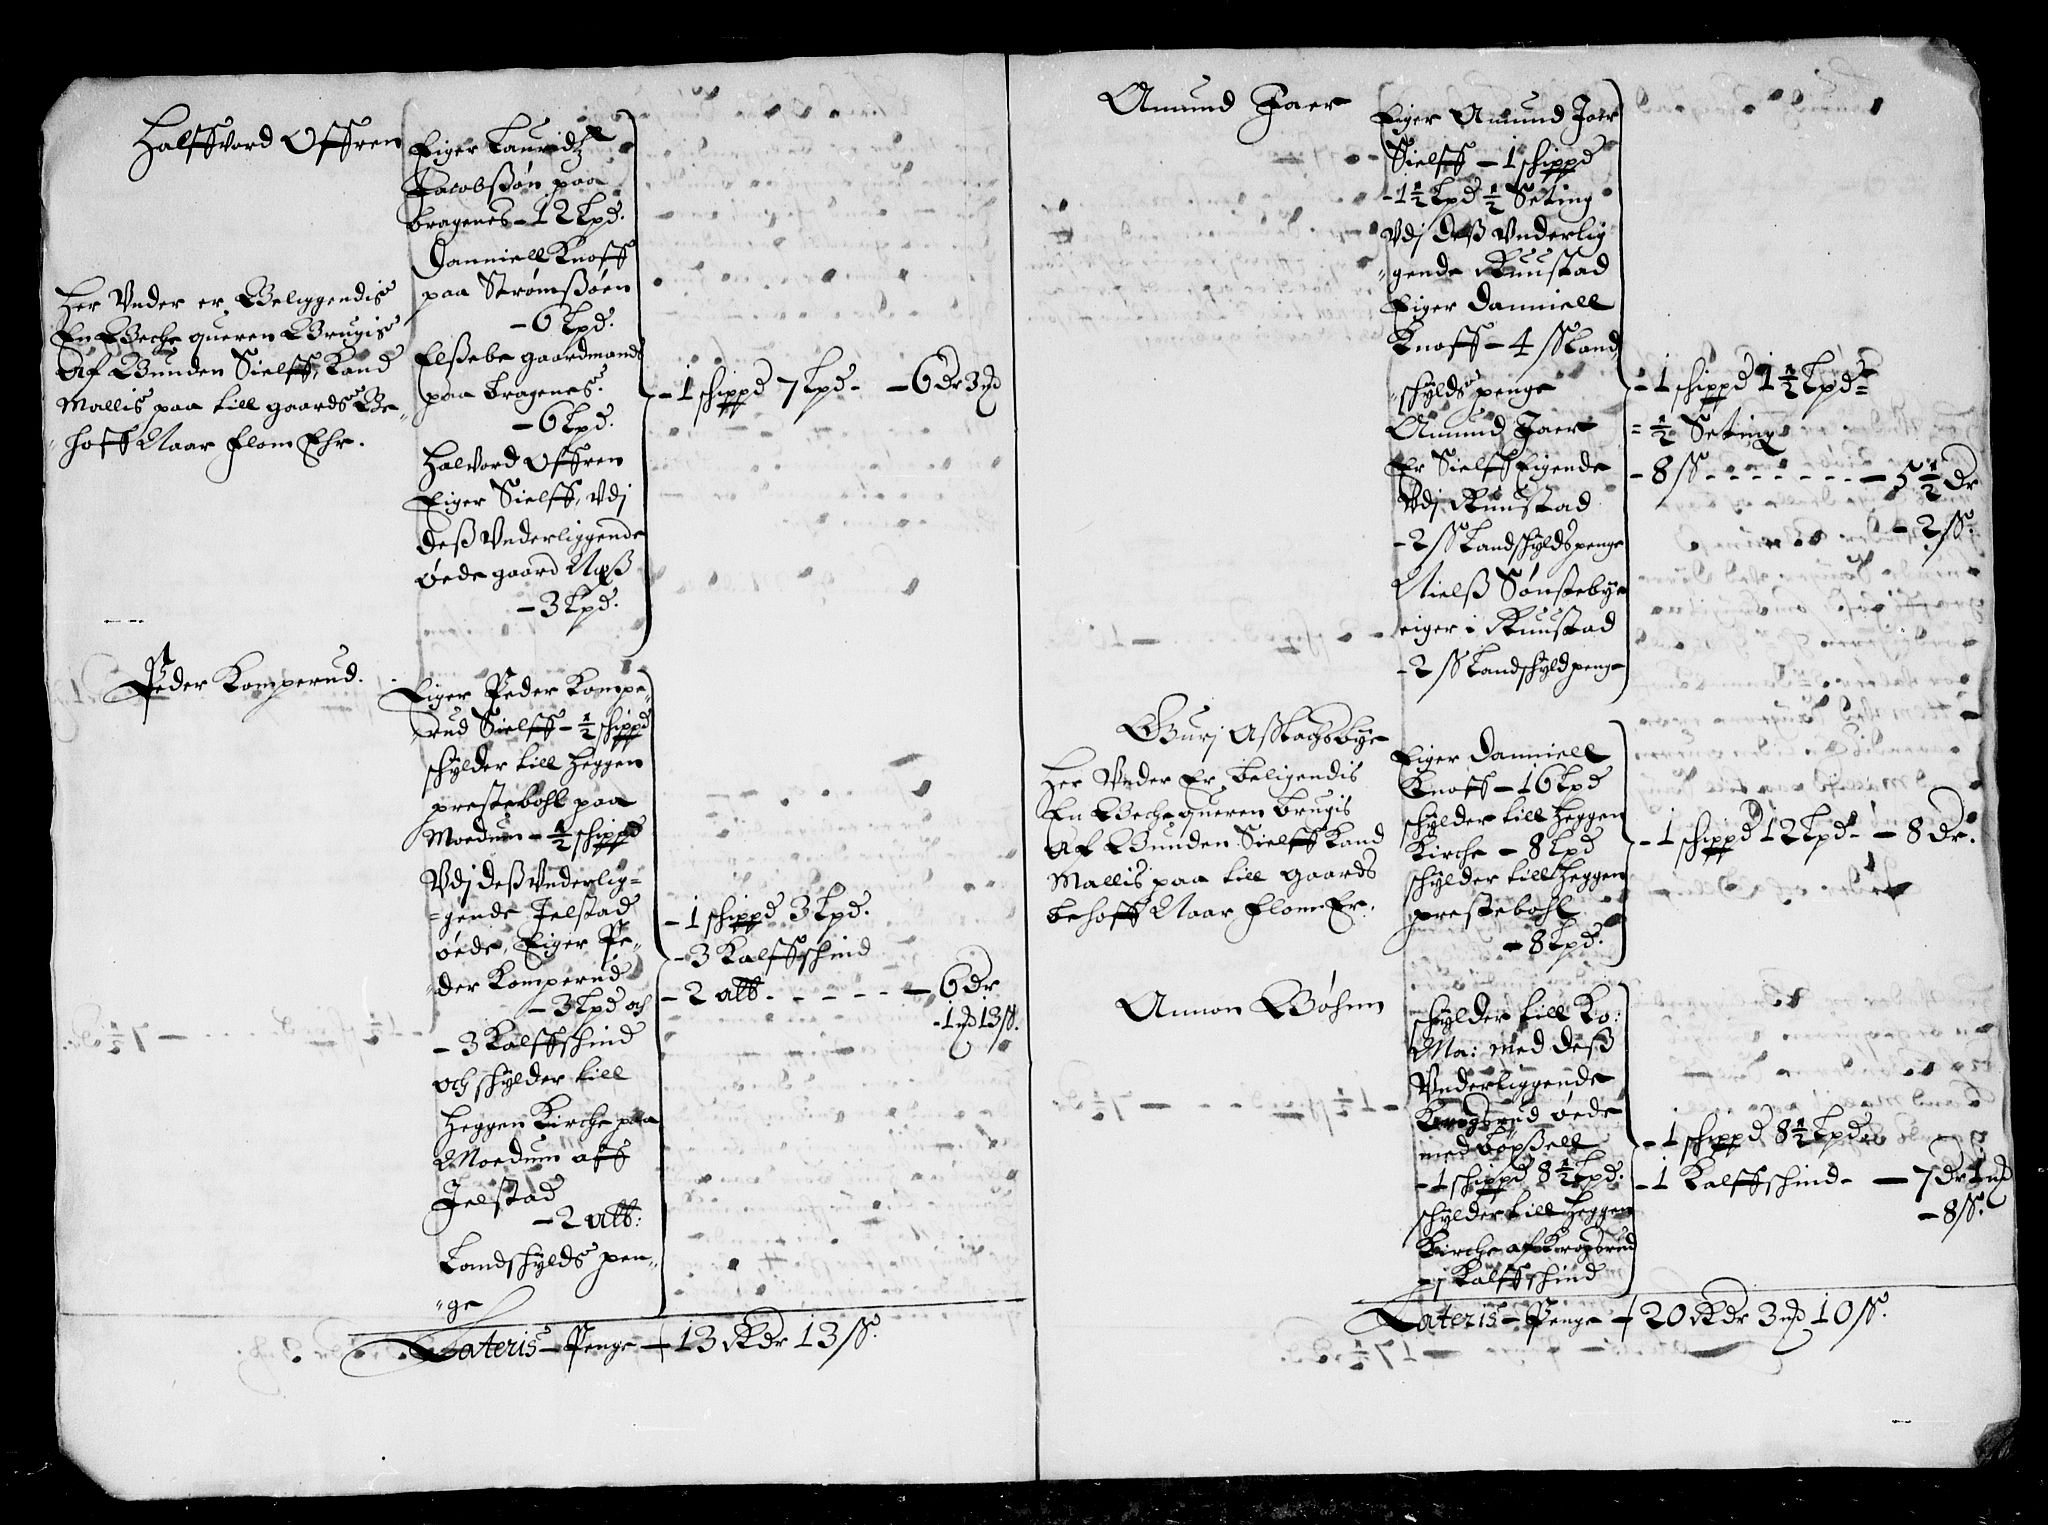 Halffvord Offren
Her Vnder er Beliggendis
En Beche queren Brugis
Af Bunden Sielff, Kand
Mallis paa till gaards Be-
hoff Naar Flom Ehr.
Eiger Lauridtz
Jacobßøn paa
bragenes - 12 Lpd.
Danniell Knoff
paa Strømßøen
- 6 Lpd.
Elßebe gaardmands
paa bragenes.
- 6 Lpd.
Halvord Offren
Eiger Sielff, Vdj
deß Vnderliggende
øede gaard Næß
- 3 Lpd.
- 1 schippd 7 Lpd - - 6 dr 3 md
Peder Komperud.
Eiger Peder Kompe-
rud Sielff - ½ schippd
schylder till Heggen
prestebohl paa
Moedum - ½ schippd
Vdj deß Vnderlig-
gende Jelstad
øede, Eiger Pe-
der Komperud
- 3 Lpd och
- 3 Kalffschind
och schylder till
Heggen Kirche paa
Moedum aff
Jelstad
- 2 alb:
Landschylds pen-
ge
- 1 schippd 3 Lpd.
- 3 Kalffschind
- 2 alb. - - - - - 6 dr
- 1 md 13 ß.
Lateris - Penge - 13 Rdr 13 ß.
Amund Jaer
Eiger Amund Jaer
Sielff - 1 schippd
- 1½ Lpd ½ Seting
Vdj deß Vnderlig
gende Ruustad
Eiger Danniell
Knoff - 4 ß Land
schylds penge
Amund Jaer
Er Sielff Eigende
Vdj Ruustad
- 2 ß Landschylds penge
Nielß Sønstebye
eiger i Ruustad
- 2 ß Landschyld penge
- 1 schippd 1½ Lpd
½ Seting
- 8 ß - - - - - - - 5½ dr
- 2 ß.
Gurj Aßlachsbye
Her Vnder Er beligendis
En Beche queren brugis
Af Bunden Sielff Kand
Mallis paa till gaards
behoff Naar Flom Er.
Eiger Danniell
Knoff - 16 Lpd
schylder till Heggen
Kirche - 8 Lpd
schylder till Heggen
prestebohl
- 8 Lpd.
- 1 schippd 12 Lpd - - 8 dr.
Annon Bøhnn
schylder till Ko:
Ma: med deß
Vnderliggende
Krogsrud øede
med bøpßell
- 1 schippd 8½ Lpd.
schylder till Heggen
Kirche af Krogsrud
- j Kalffschind
- 1 schippd 8½ Lpd
- 1 Kalffschind - - 7 dr 1 md
- 8 ß.
Lateris - Penge - 20 Rdr 3 md 10 ß.